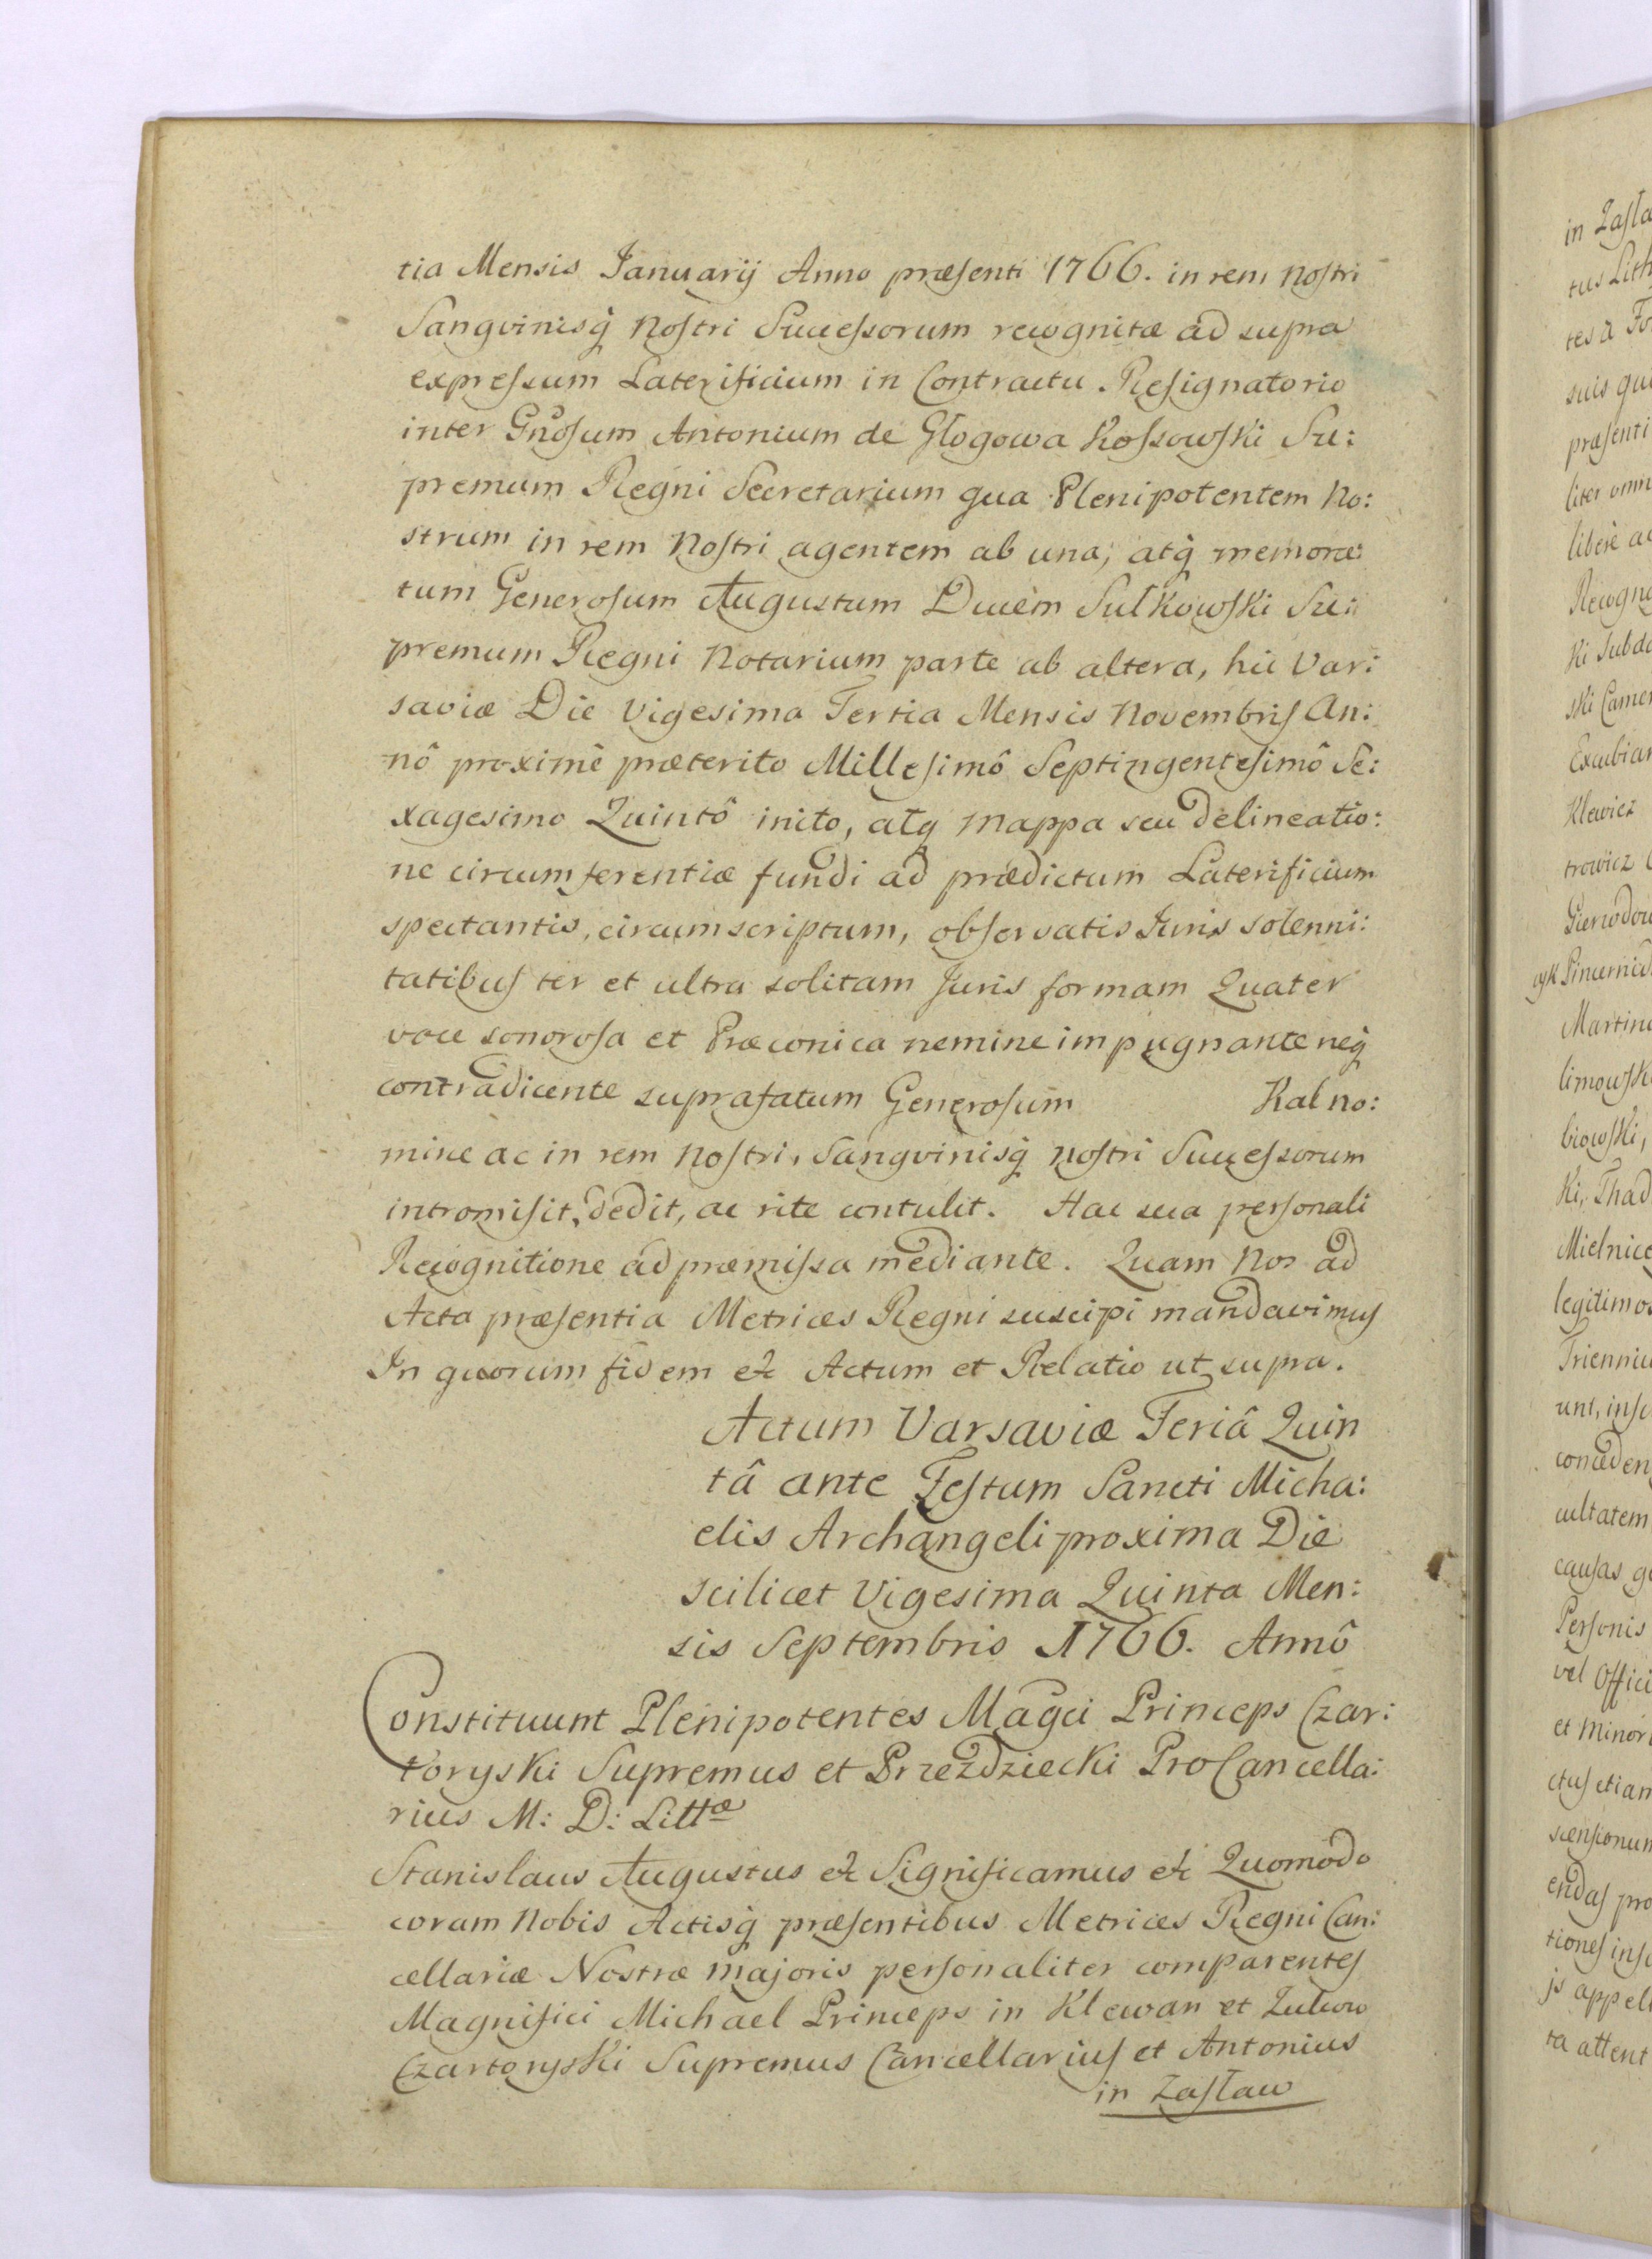 tia Mensis Januarij Anno præsenti 1766. in rem nostri
Sangvinisq̃ nostri Successorum recognitæ ad supra
expressum Laterificium in Contractu Resignatorio
inter Gn̄osum Antonium de Głogowa Kossowski Su:
premum Regni Secretarium qua Plenipotentem no:
strum in rem nostri agentem ab una, atq̃ memora:
tum Generosum Augustum Ducem Sułkowski Su:
premum Regni Notarium parte ab altera, hic Var:
saviæ Die Vigesima Tertia Mensis Novembris An:
nô proximê præterito Millesimô Septingentesimô Se:
xagesimo Quintô inito, atq̃ mappa seu delineatio:
ne circumferentiæ fundi ad prædictum Laterificium
spectantis, circumscriptum, observatis Juris solenni:
tatibus ter et ultra solitam Juris formam Quater
voce sonorosa et Præconica nemine impugnante neq̃
contradicente suprafatum Generosum Kal no:
mine ac in rem nostri, Sangvinisq̃ nostri Successorum
intromisit, dedit, ac rite contulit. Hac sua personali
Recognitione ad præmissa mediante. Quam nos ad
Acta præsentia Metrices Regni suscipi mandavimus
In quorum fidem &c Actum et Relatio ut supra.
Actum Varsaviæ Feriâ Quin
tâ ante Festum Sancti Micha:
elis Archangeli proxima Die
scilicet Vigesima Quinta Men:
sis Septembris 1766. Annô
Constituunt Plenipotentes Magci Princeps Czar:
toryski Supremus et Przezdziecki ProCancella:
rius M: D: Littæ
Stanislaus Augustus &c Significamus &c Quomodo
coram Nobis Actisq̃ præsentibus Metrices Regni Can:
cellariæ Nostræ majoris personaliter comparentes
Magnifici Michael Princeps in Klewan et Zukow
Czartoryski Supremus Cancellarius et Antonius
in Zasław